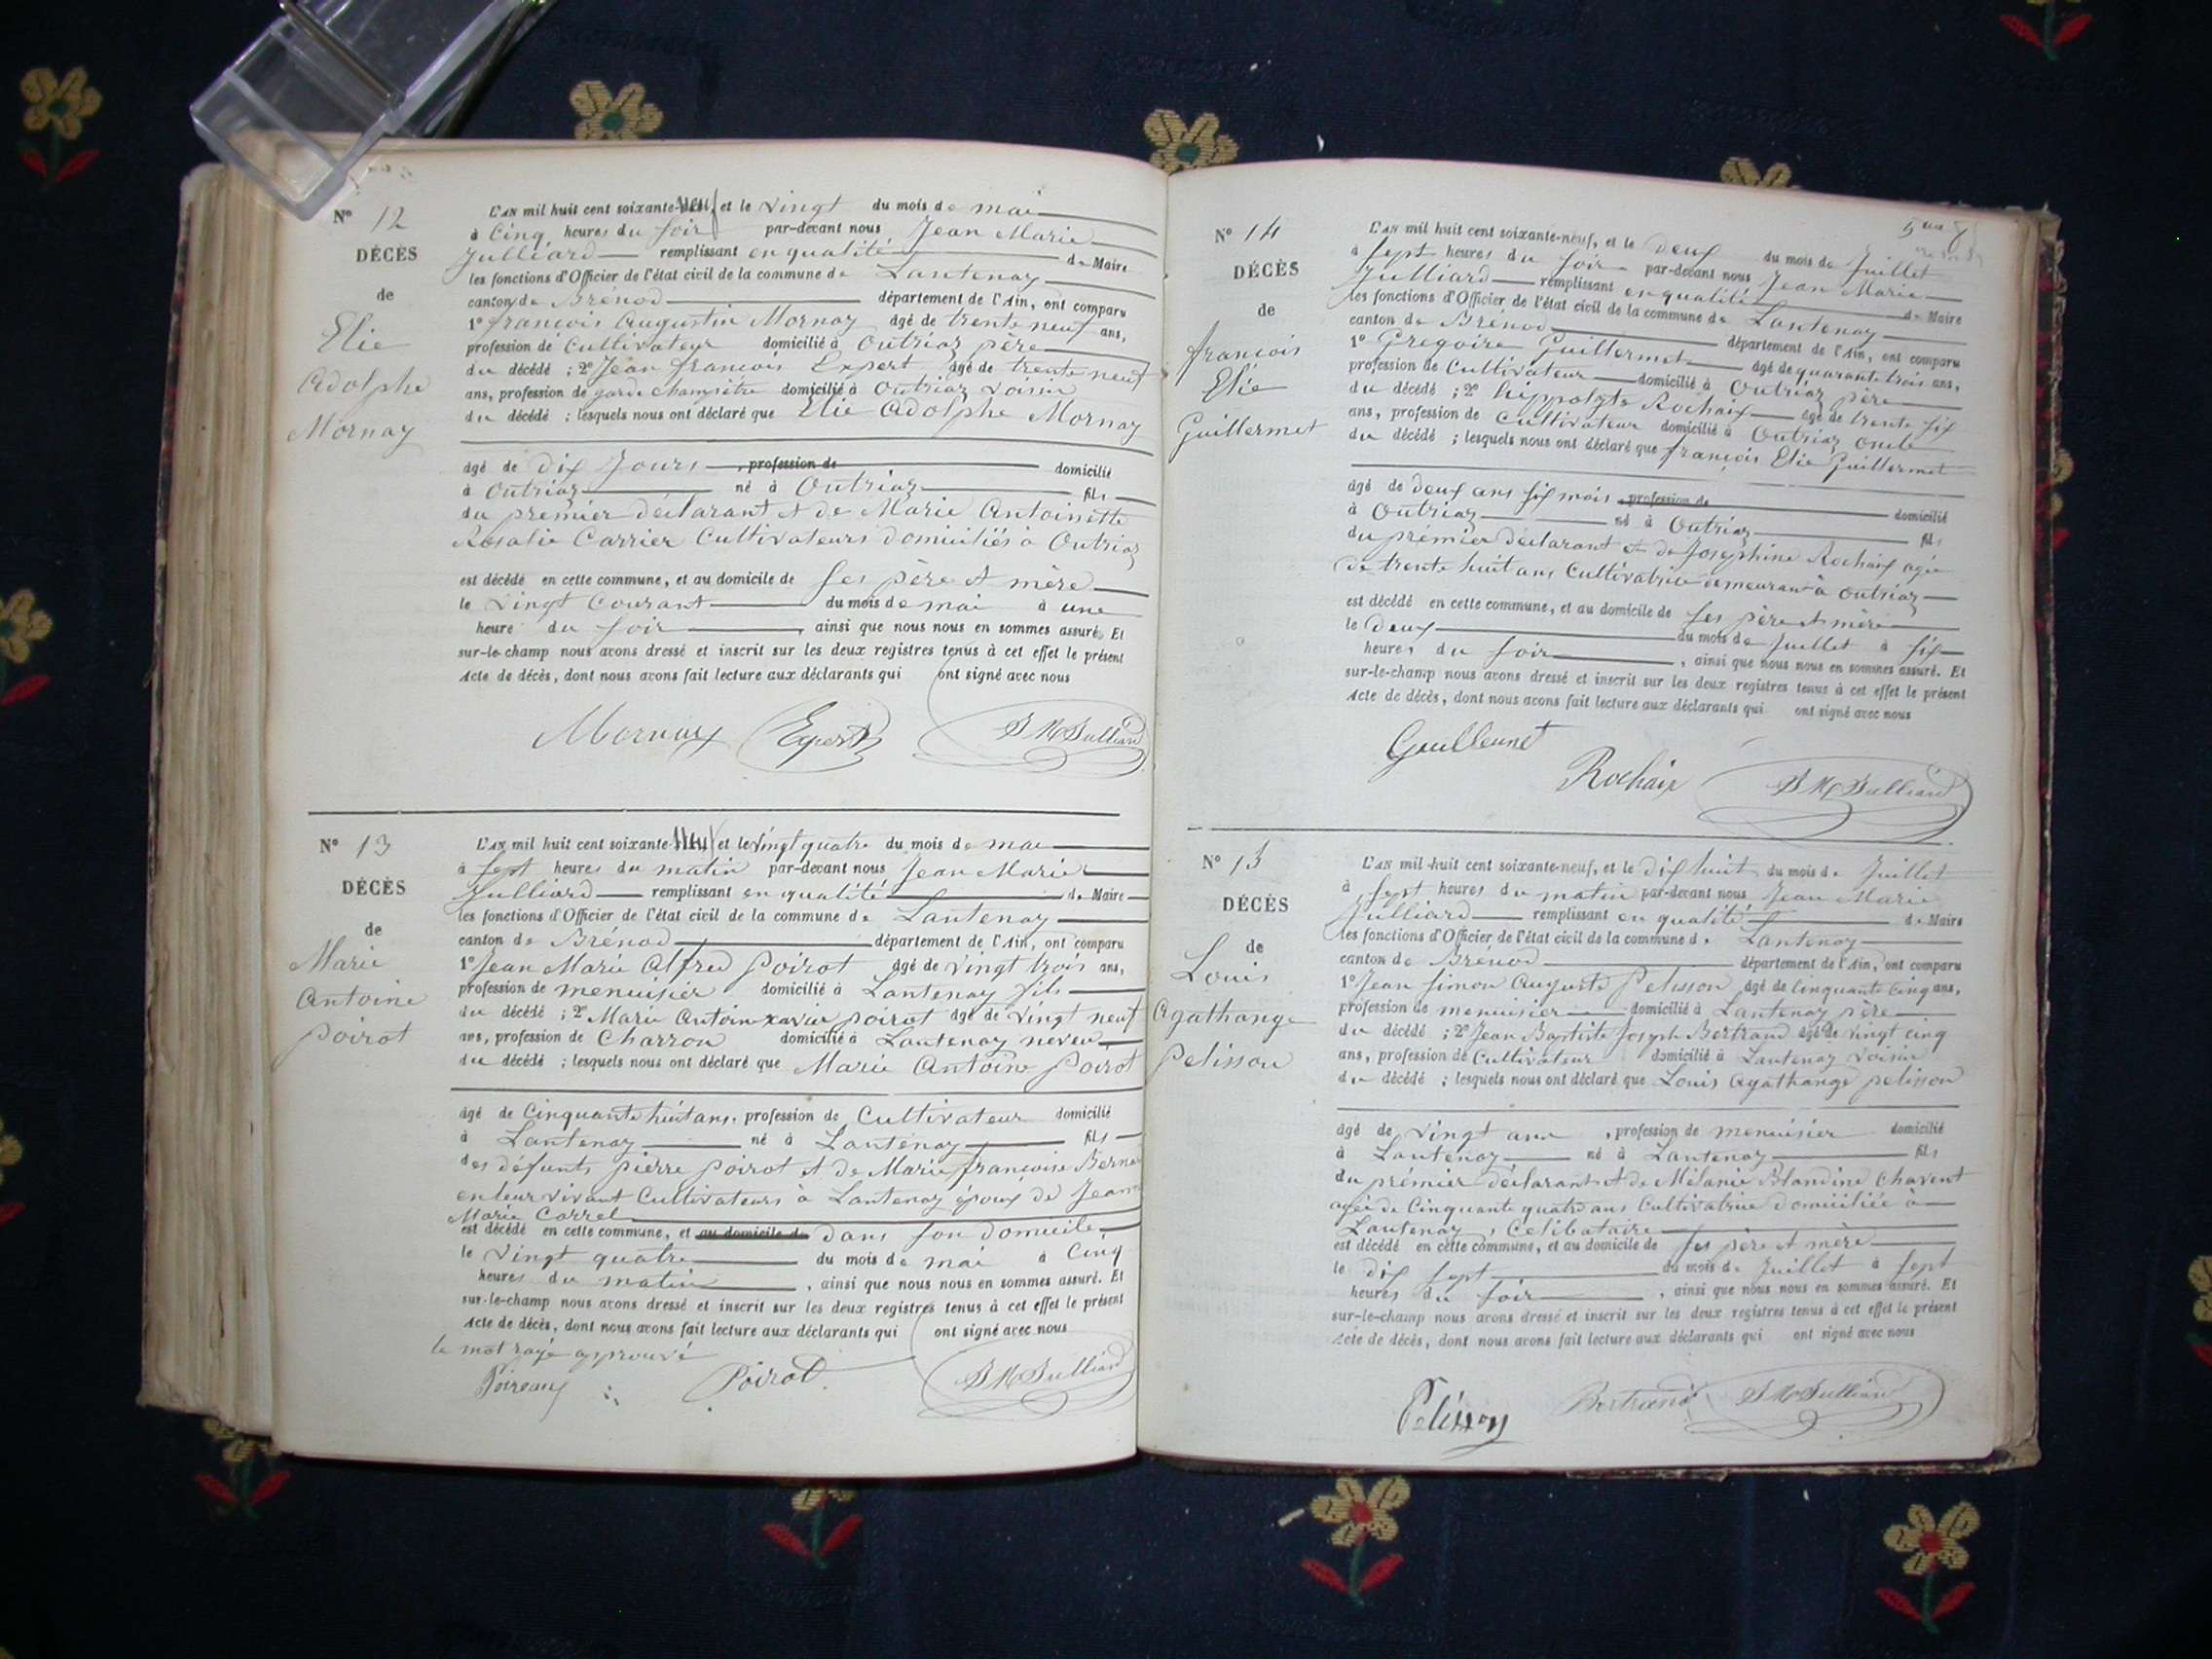 N° 12
DÉCÈS
de
Elie
Adolphe
Mornay
L'AN mil huit cent soixante-neuf et le vingt du mois de mai
à Cinq heures du soir par-devant nous Jean Marie
Julliard remplissant en qualité de Maire
les fonctions d'Officier de l'état civil de la commune de Lantenay
canton de Brénod département de l'Ain, ont comparu
1° françois Augustin Mornay âgé de trente neuf ans,
profession de Cultivateur domicilié à Outriaz père
du décédé ; 2° Jean françois Expert âgé de trente neuf
ans, profession de garde champêtre domicilié à Outriaz voisin
du décédé ; lesquels nous ont déclaré que Elie Adolphe Mornay
âgé de dix Jours , profession de domicilié
à Outriaz né à Outriaz fils
du premier déclarant et de Marie Antoinette
Rosalie Carrier Cultivateurs domiciliés à Outriaz
est décédé en cette commune, et au domicile de ses père et mère
le vingt Courant du mois de mai à une
heure du soir , ainsi que nous nous en sommes assuré. Et
sur-le-champ nous avons dressé et inscrit sur les deux registres tenus à cet effet le présent
Acte de décès, dont nous avons fait lecture aux déclarants qui ont signé avec nous
Mornay Expert J M Julliard
N° 13
DÉCÈS
de
Marie
Antoine
poirot
L'AN mil huit cent soixante-neuf et le vingt quatre du mois de mai
à sept heures du matin par-devant nous Jean Marie
Julliard remplissant en qualité de Maire
les fonctions d'Officier de l'état civil de la commune de Lantenay
canton de Brénod département de l'Ain, ont comparu
1° Jean Marie Alfred poirot âgé de vingt trois ans,
profession de menuisier domicilié à Lantenay fils
du décédé ; 2° Marie Antoin xavier poirot âgé de vingt neuf
ans, profession de Charron domicilié à Lantenay neveu
du décédé ; lesquels nous ont déclaré que Marie Antoine poirot
âgé de Cinquante huit ans, profession de Cultivateur domicilié
à Lantenay né à Lantenay fils
des défunts pierre poirot et de Marie françoise
en leur vivant Cultivateurs à Lantenay époux de Jeanne
Marie Carrel
est décédé en cette commune, et au domicile de dans son domicile
le vingt quatre du mois de mai à Cinq
heures du matin , ainsi que nous nous en sommes assuré. Et
sur-le-champ nous avons dressé et inscrit sur les deux registres tenus à cet effet le présent
Acte de décès, dont nous avons fait lecture aux déclarants qui ont signé avec nous
le mot rayé approuvé
Poirot J M Julliard
N° 14
DÉCÈS
de
françois
Elie
Guillermet
L'AN mil huit cent soixante-neuf, et le deux du mois de Juillet
à sept heures du soir par-devant nous Jean Marie
Julliard remplissant en qualité de Maire
les fonctions d'Officier de l'état civil de la commune de Lantenay
canton de Brénod département de l'Ain, ont comparu
1° Gregoire Guillermet âgé de quarante trois ans,
profession de Cultivateur domicilié à Outriaz père
du décédé ; 2° hippolyte Rochaix âgé de trente six
ans, profession de Cultivateur domicilié à Outriaz oncle
du décédé ; lesquels nous ont déclaré que françois Elie Guillermet
âgé de deux ans six mois , profession de domicilié
à Outriaz né à Outriaz fils
du prémier déclarant et de Josephine Rochaix agée
de trente huit ans Cultivatrice demeurant à Outriaz
est décédé en cette commune, et au domicile de ses père et mère
le deux du mois de Juillet à six
heures du soir , ainsi que nous nous en sommes assuré. Et
sur-le-champ nous avons dressé et inscrit sur les deux registres tenus à cet effet le présent
Acte de décès, dont nous avons fait lecture aux déclarants qui ont signé avec nous
Rochaix J M Julliard
N° 15
DÉCÈS
de
Louis
Agathange
pelisson
L'AN mil huit cent soixante-neuf, et le dix huit du mois de Juillet
à sept heures du matin par-devant nous Jean Marie
Julliard remplissant en qualité de Maire
les fonctions d'Officier de l'état civil de la commune de Lantenay
canton de Brénod département de l'Ain, ont comparu
1° Jean Simon Auguste Pelisson âgé de Cinquante Cinq ans,
profession de menuisier domicilié à Lantenay père
du décédé ; 2° Jean Baptiste Joseph Bertrand âgé de vingt cinq
ans, profession de Cultivateur domicilié à Lantenay voisin
du décédé ; lesquels nous ont déclaré que Louis Agathange pelisson
âgé de vingt ans , profession de menuisier domicilié
à Lantenay né à Lantenay fils
du prémier déclarant et de Mélanie Blandine Chavent
agée de Cinquante quatre ans Cultivatrice domiciliée à
Lantenay , Celibataire
est décédé en cette commune, et au domicile de ses père et mère
le dix sept du mois de Juillet à sept
heures du soir , ainsi que nous nous en sommes assuré. Et
sur-le-champ nous avons dressé et inscrit sur les deux registres tenus à cet effet le présent
Acte de décès, dont nous avons fait lecture aux déclarants qui ont signé avec nous
Pelisson Bertrand J M Julliard